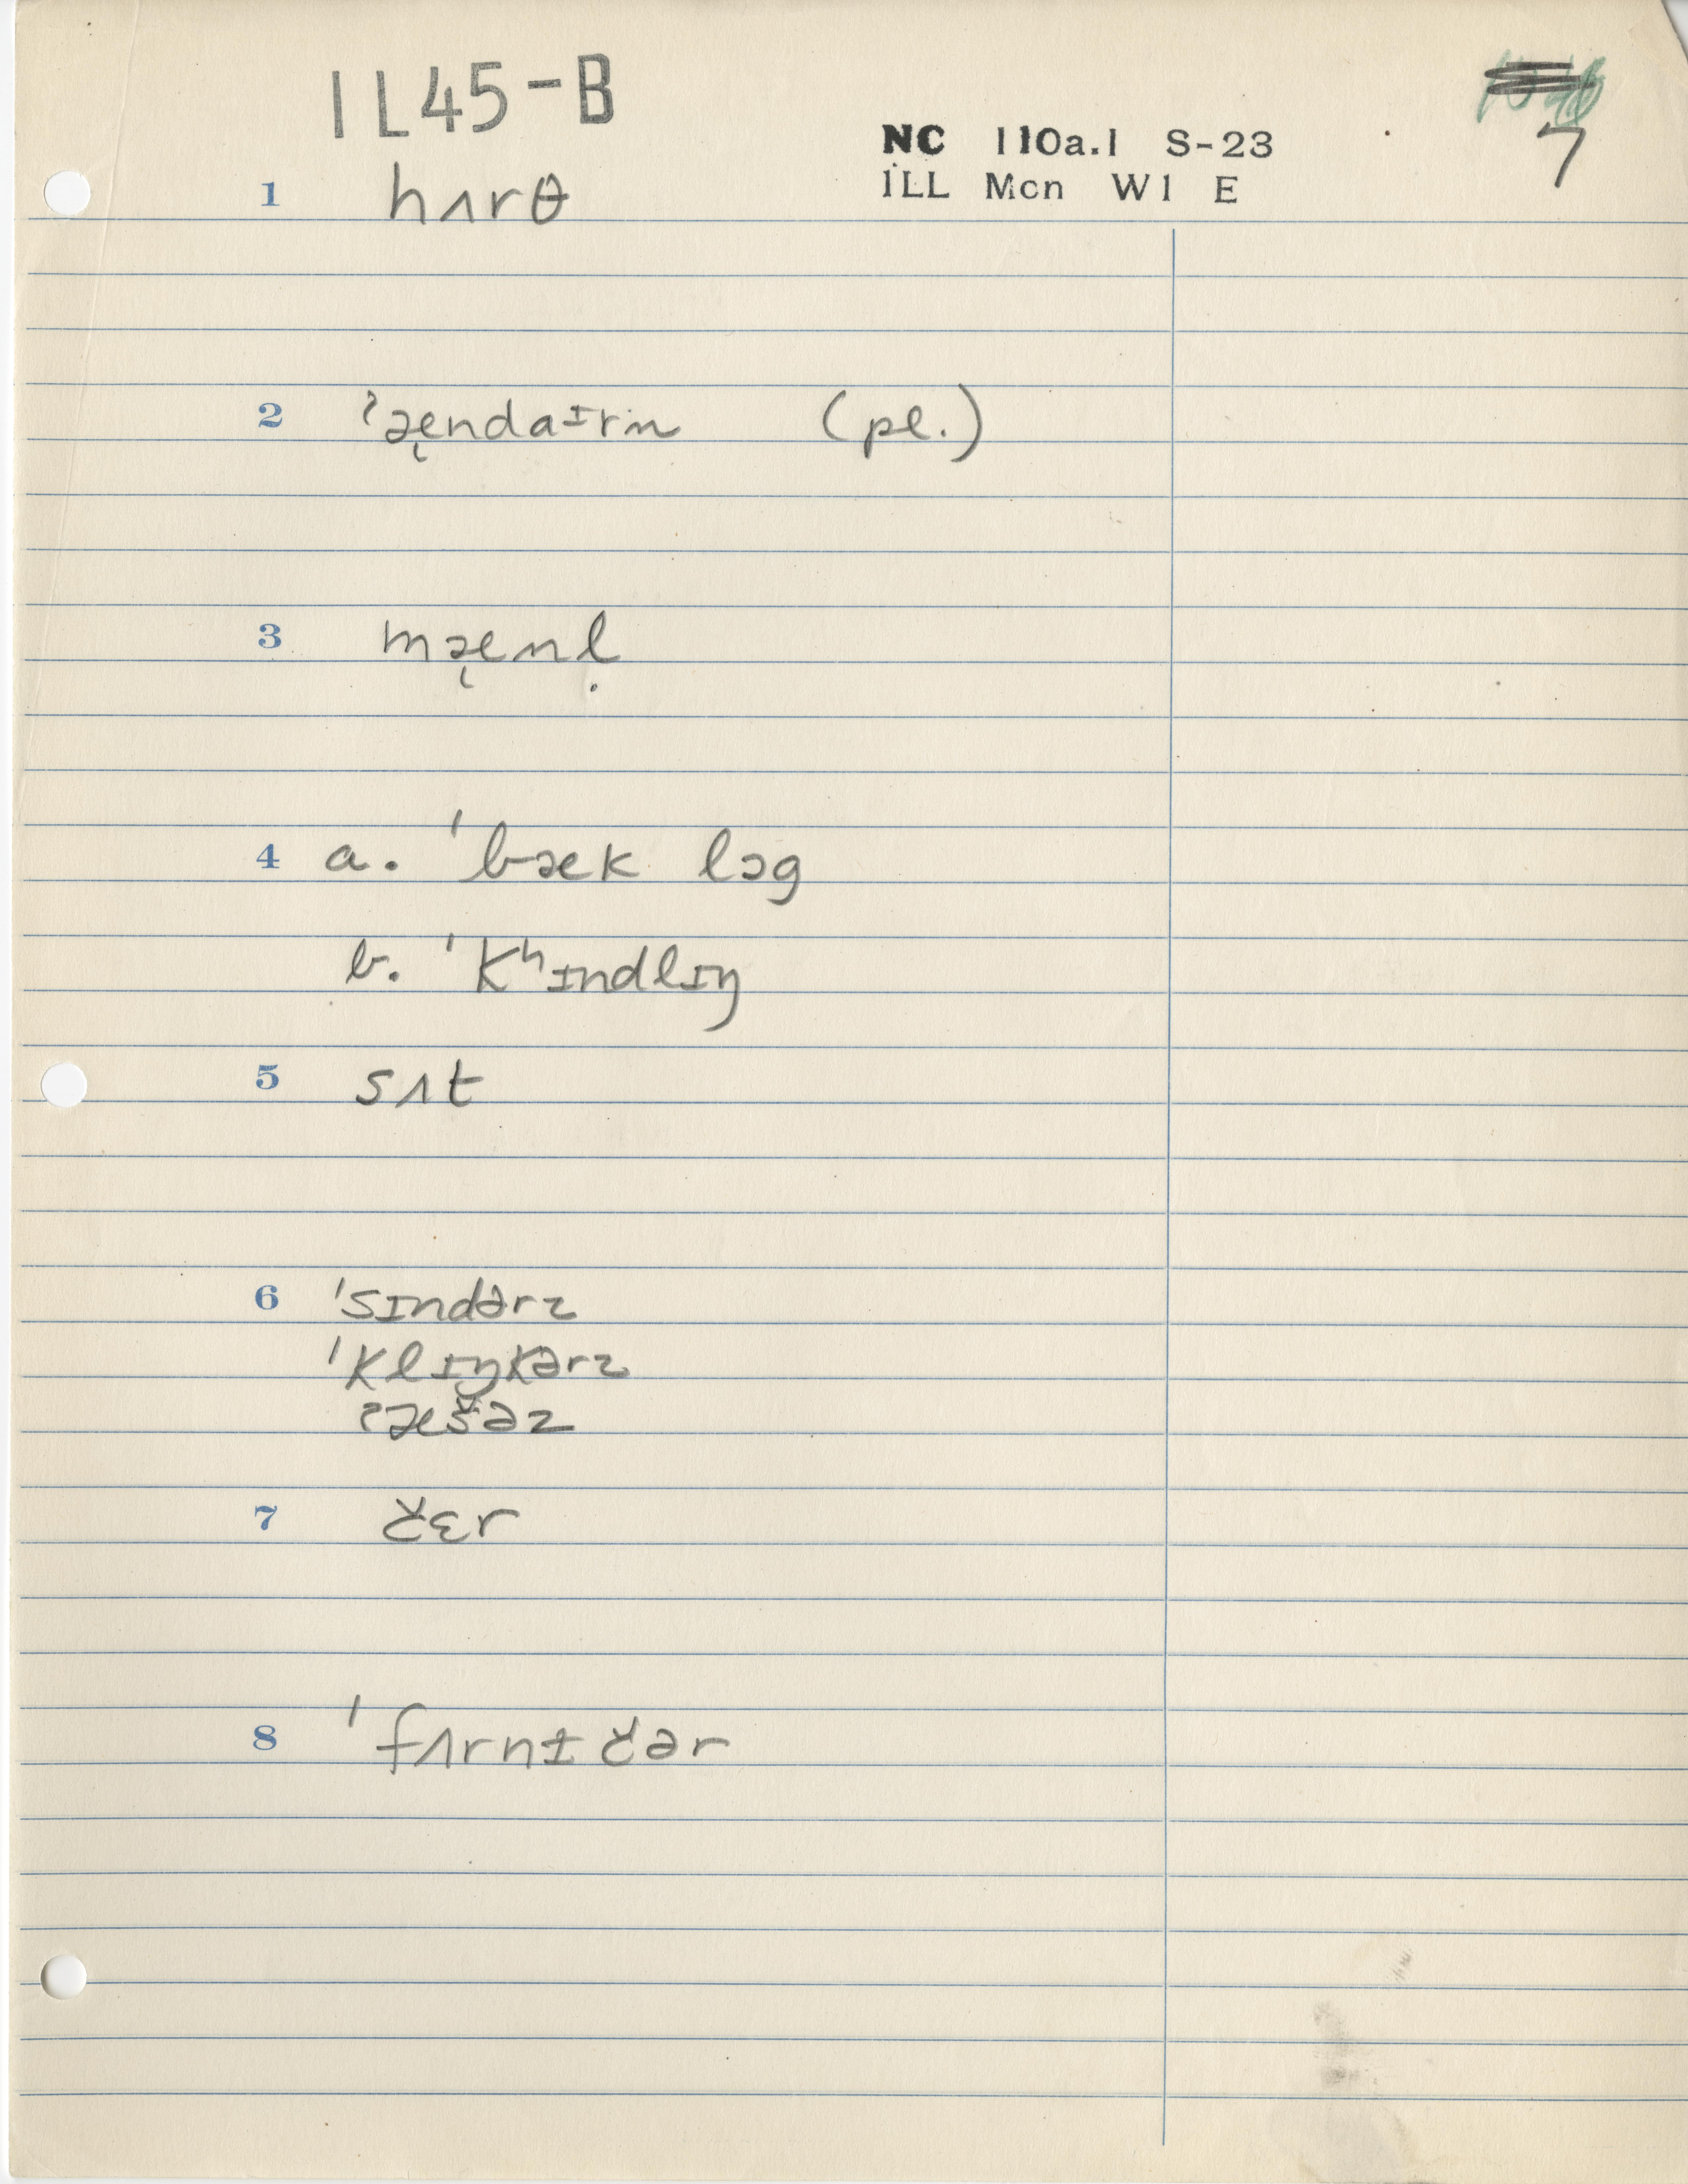 IL45-B
NC 110a.1 S-23
ILL Mcn W1 E
7
1 hʌrθ
2 ʔæ̨ndaɪrn (pl.)
3 mæ̨nḷ
4 a. ˈbæk lɔg
b. ˈkʰɪndlɪŋ
5 sʌt
6 ˈsɪndərz
ˈklɪŋkərz
ʔæšəz
7 čɛr
8 ˈfʌrnɪčər